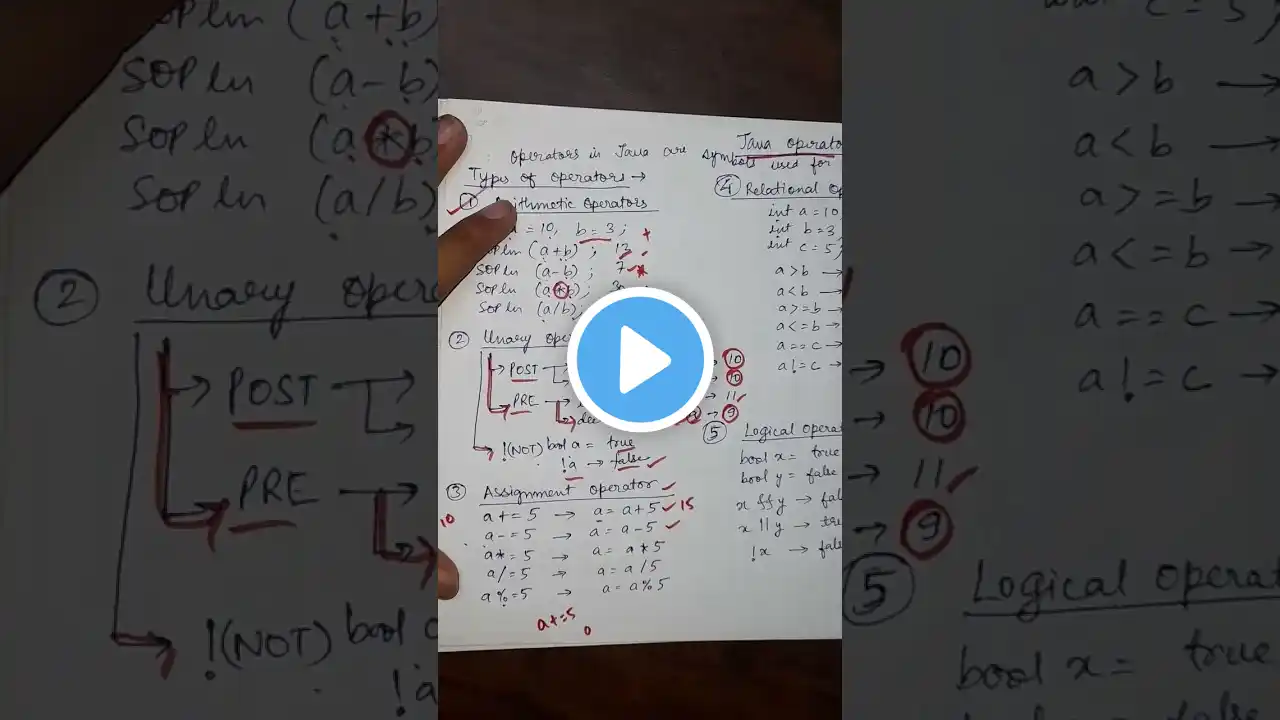 Java operato
Operators in Java are symbols used for
Types of operators →
① Arithmetic Operators
a = 10, b = 3;
SOPln (a+b); 13
SOPln (a-b); 7
SOPln (a*b); 30
SOPln (a/b);
② Unary ope
POST
PRE
10
10
11
9
!(NOT) bool a = true
!a → false
③ Assignment operator
a+=5 → a = a+5 15
10
a-=5 → a = a-5
a*=5 → a = a*5
a/=5 → a = a/5
a%=5 → a = a%5
a+=5
0
④ Relational Op
int a = 10,
int b = 3,
int c = 5;
a>b →
a<b →
a>=b →
a<=b →
a==c →
a!=c →
⑤ Logical operat
bool x = true
bool y = false
x && y → fal
x || y → tr
!x → fals